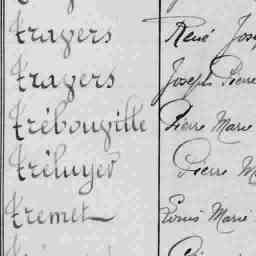 Travers René
Travers Joseph Pierre
Trébouville Pierre Marie
Tréluyer Pierre
Tremet Louis Marie